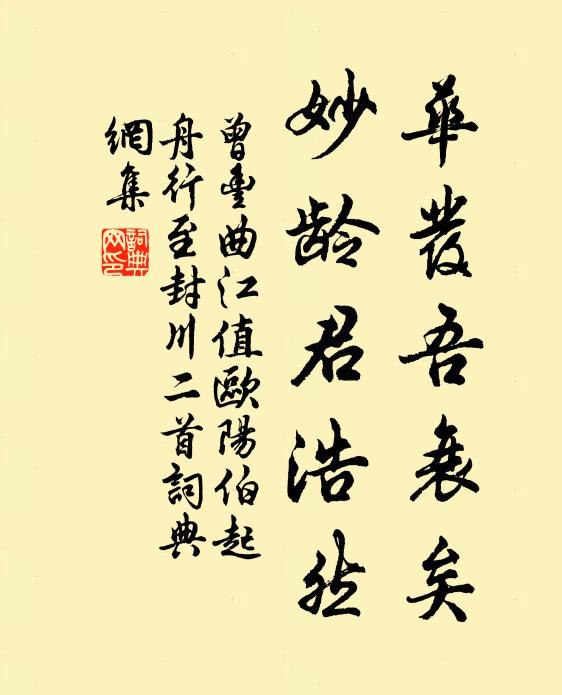 華發吾衰矣
妙齡君浩然
曾豊曲江值歐陽伯起
舟行至封川二首詞典
網集
詞典
网印